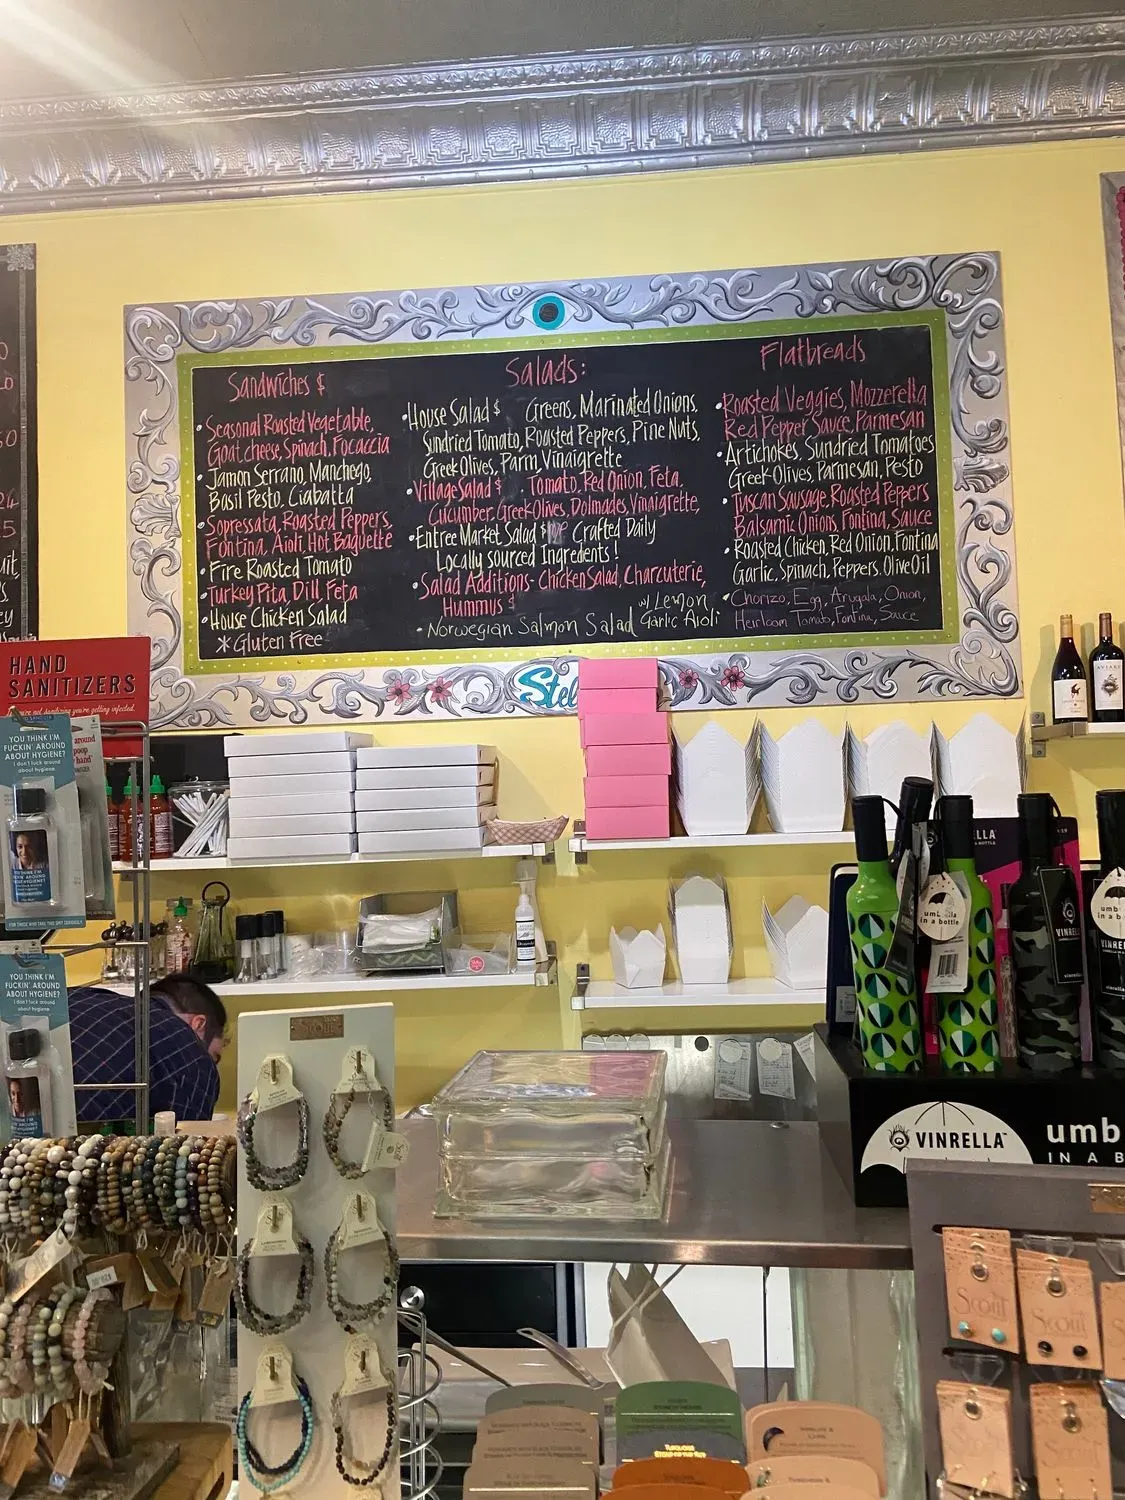 Sandwiches $
• Seasonal Roasted Vegetable,
Goat cheese, Spinach, Focaccia
• Jamon Serrano, Manchego,
Basil Pesto, Ciabatta
• Sopressata, Roasted Peppers,
Fontina, Aioli, Hot Baguette
• Fire Roasted Tomato
• Turkey Pita, Dill, Feta
• House Chicken Salad
* Gluten Free
Salads:
• House Salad $ Greens, Marinated Onions,
Sundried Tomato, Roasted Peppers, Pine Nuts,
Greek Olives, Parm, Vinaigrette
• Village Salad $ Tomato, Red Onion, Feta,
Cucumber, Greek Olives, Dolmades, Vinaigrette,
• Entree Market Salad $ Crafted Daily
Locally sourced Ingredents!
• Salad Additions - Chicken Salad, Charcuterie,
Hummus $
• Norwegian Salmon Salad w/ Lemon
Garlic Aioli
Flatbreads
• Roasted Veggies, Mozzerella
Red Pepper Sauce, Parmesan
• Artichokes, Sundried Tomatoes
Greek Olives, Parmesan, Pesto
• Tuscan Sausage, Roasted Peppers
Balsamic Onions, Fontina, Sauce
• Roasted Chicken, Red Onion, Fontina
Garlic, Spinach, Peppers, Olive Oil
• Chorizo, Egg, Arugala, Onion,
Heirloom Tomato, Fontina, Sauce
Stel
HAND
SANITIZERS
YOU THINK I'M
FUCKIN' AROUND
ABOUT HYGIENE?
I don't fuck around
about hygiene.
YOU THINK I'M
FUCKIN' AROUND
ABOUT HYGIENE?
I don't fuck around
about hygiene.
umbrella
in a bottle
VINRELLA
umb
in a b
VINRELLA
umb
IN A B
Scout
Scout
Scout